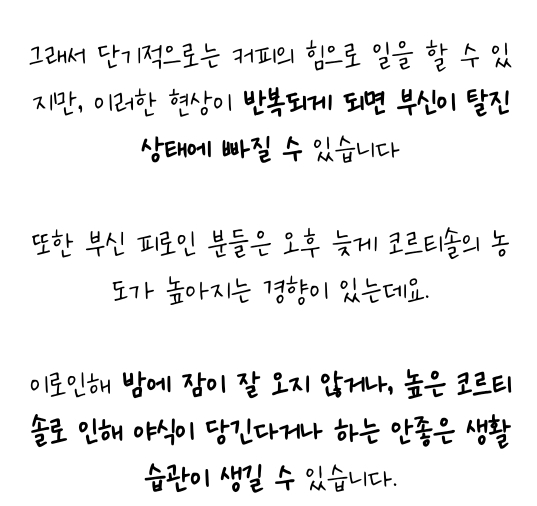 그래서 단기적으로는 커피의 힘으로 일을 할 수 있
지만, 이러한 현상이 반복되게 되면 부신이 탈진
상태에 빠질 수 있습니다
또한 부신 피로인 분들은 오후 늦게 코르티솔의 농
도가 높아지는 경향이 있는데요.
이로인해 밤에 잠이 잘 오지 않거나, 높은 코르티
솔로 인해 야식이 당긴다거나 하는 안좋은 생활
습관이 생길 수 있습니다.